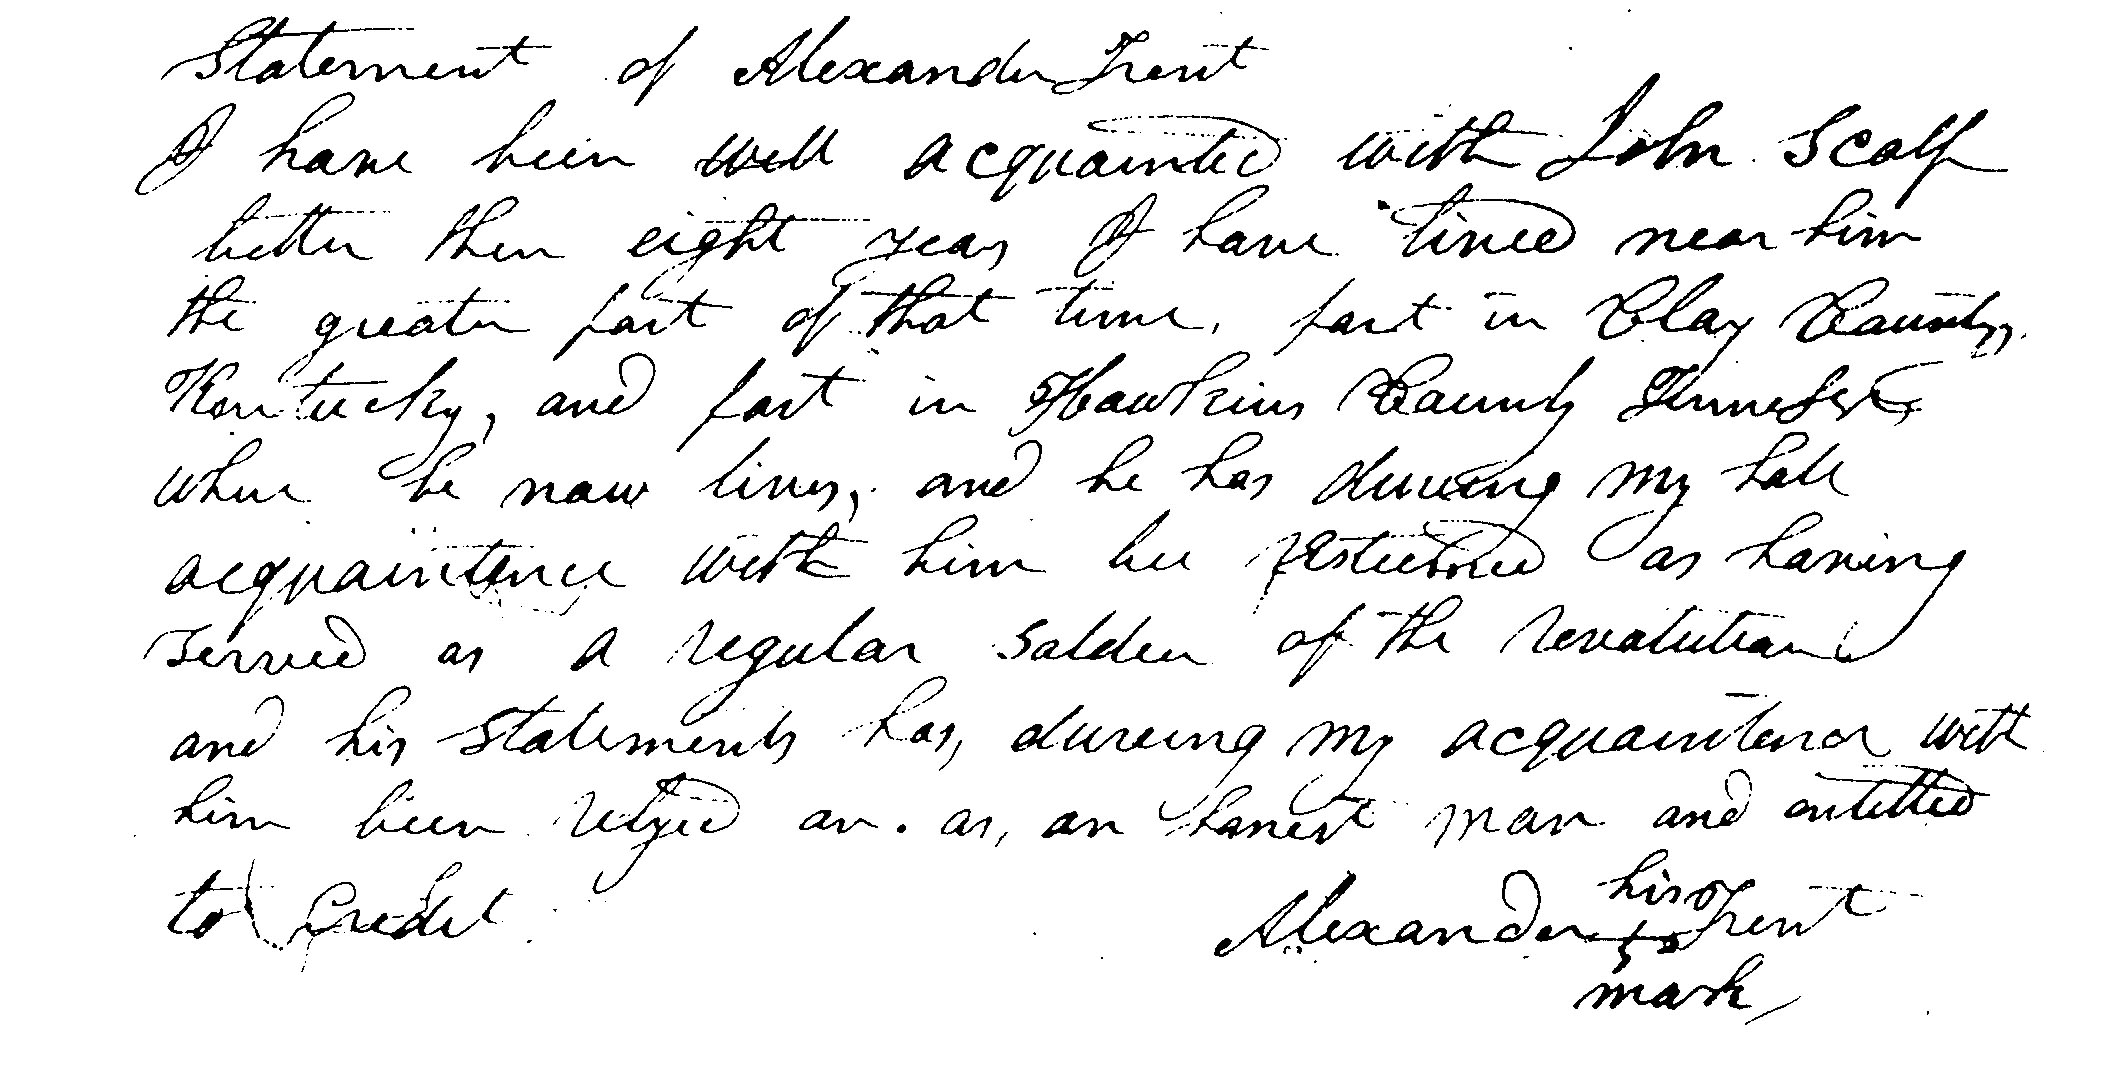 Statement of Alexander Trent
I have been well acquainted with John Scalf
better then eight years I have lived near him
the greater part of that time, part in Clay County
Kentucky, and part in Hawkins County Tennessee
where he now lives, and he has dureing my hole
acquaintence with him bee esteemed as having
served as a regular solder of the revolution
and his statements has, dureing my acquaintence with
him been relyed on. as, an honest man and entitled
to Credit
his
Alexander Trent
mark